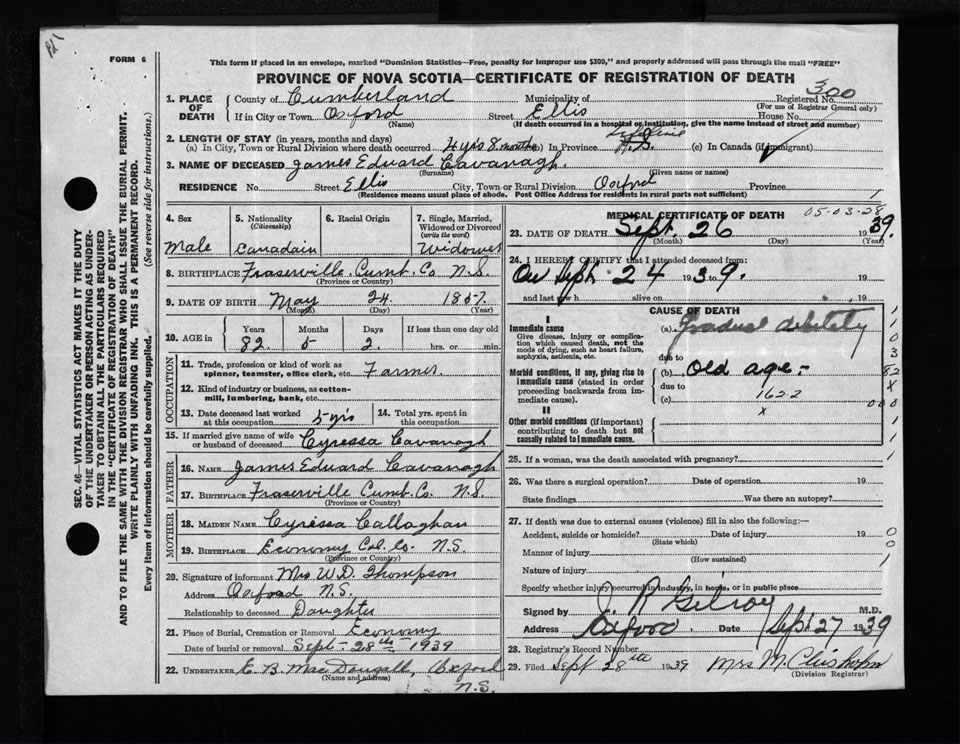 FORM 6
This form if placed in an envelope, marked "Dominion Statistics—Free, penalty for improper use $300," and properly addressed will pass through the mail "FREE"
PROVINCE OF NOVA SCOTIA—CERTIFICATE OF REGISTRATION OF DEATH
300
1. PLACE OF DEATH
County of Cumberland Municipality of Registered No.
(For use of Registrar General only)
If in City or Town Oxford Street Ellis House No.
(Name) (If death occurred in a hospital or institution, give the name instead of street and number)
2. LENGTH OF STAY (in years, months and days) Lifetime
(a) In City, Town or Rural Division where death occurred 4 yrs 8 months (b) In Province N.S. (c) In Canada (if immigrant)
3. NAME OF DECEASED James Eduard Cavanagh.
(Surname) (Given name or names)
RESIDENCE No. Street Ellis City, Town or Rural Division Oxford Province
(Residence means usual place of abode. Post Office Address for residence in rural parts not sufficient)
1
SEC. 46—VITAL STATISTICS ACT MAKES IT THE DUTY
OF THE UNDERTAKER OR PERSON ACTING AS UNDER-
TAKER TO OBTAIN ALL THE PARTICULARS REQUIRED
IN THE "CERTIFICATE OF REGISTRATION OF DEATH"
AND TO FILE THE SAME WITH THE DIVISION REGISTRAR WHO SHALL ISSUE THE BURIAL PERMIT.
WRITE PLAINLY WITH UNFADING INK. THIS IS A PERMANENT RECORD.
Every item of information should be carefully supplied. (See reverse side for instructions.)
4. Sex
Male
5. Nationality
(Citizenship)
Canadain
6. Racial Origin
7. Single, Married, Widowed or Divorced
(write the word)
Widower
8. BIRTHPLACE Fraserville. Cumb. Co N.S.
(Province or Country)
9. DATE OF BIRTH May 24. 1857.
(Month) (Day) (Year)
10. AGE in
Years Months Days If less than one day old
82 5 2. hrs. or min.
OCCUPATION
11. Trade, profession or kind of work as spinner, teamster, office clerk, etc. Farmer.
12. Kind of industry or business, as cotton-mill, lumbering, bank, etc.
13. Date deceased last worked at this occupation 5-yrs
14. Total yrs. spent in this occupation
15. If married give name of wife or husband of deceased Cyressa Cavanagh
FATHER
16. NAME James Eduard Cavanagh
17. BIRTHPLACE Fraserville Cumb. Co. N.S.
(Province or Country)
MOTHER
18. MAIDEN NAME Cyressa Callaghan
19. BIRTHPLACE Economy Col. Co. N.S.
(Province or Country)
20. Signature of informant Mrs W.D. Thompson
Address Oxford N.S.
Relationship to deceased Daughter
21. Place of Burial, Cremation or Removal Economy
Date of burial or removal Sept- 28th 1939
22. UNDERTAKER E. B. MacDougall, Oxford
(Name and address) N.S.
MEDICAL CERTIFICATE OF DEATH
05-03-28
23. DATE OF DEATH Sept. 26 1939.
(Month) (Day) (Year)
24. I HEREBY CERTIFY that I attended deceased from:
On Sept. 24 1939.
and last saw h alive on 19
CAUSE OF DEATH
I
Immediate cause
Give disease, injury or complication which caused death, not the mode of dying, such as heart failure, asphyxia, asthenia, etc.
(a) Gradual debility
due to
Morbid conditions, if any, giving rise to immediate cause (stated in order proceeding backwards from immediate cause).
(b) Old age-
due to
(c) 1622
x
II
Other morbid conditions (if important) contributing to death but not causally related to immediate cause.
1
1
0
3
82
X
000
25. If a woman, was the death associated with pregnancy?
26. Was there a surgical operation? Date of operation. 19
State findings Was there an autopsy?
27. If death was due to external causes (violence) fill in also the following:—
Accident, suicide or homicide? Date of injury 19
(State which)
Manner of injury
(How sustained)
Nature of injury
Specify whether injury occurred in industry, in home, or in public place
0
0
1
Signed by J. R Gilroy M.D.
Address Oxford Date Sept 27 1939
28. Registrar's Record Number
29. Filed Sept 28th 1939 Mrs M. Chisholm
(Division Registrar)